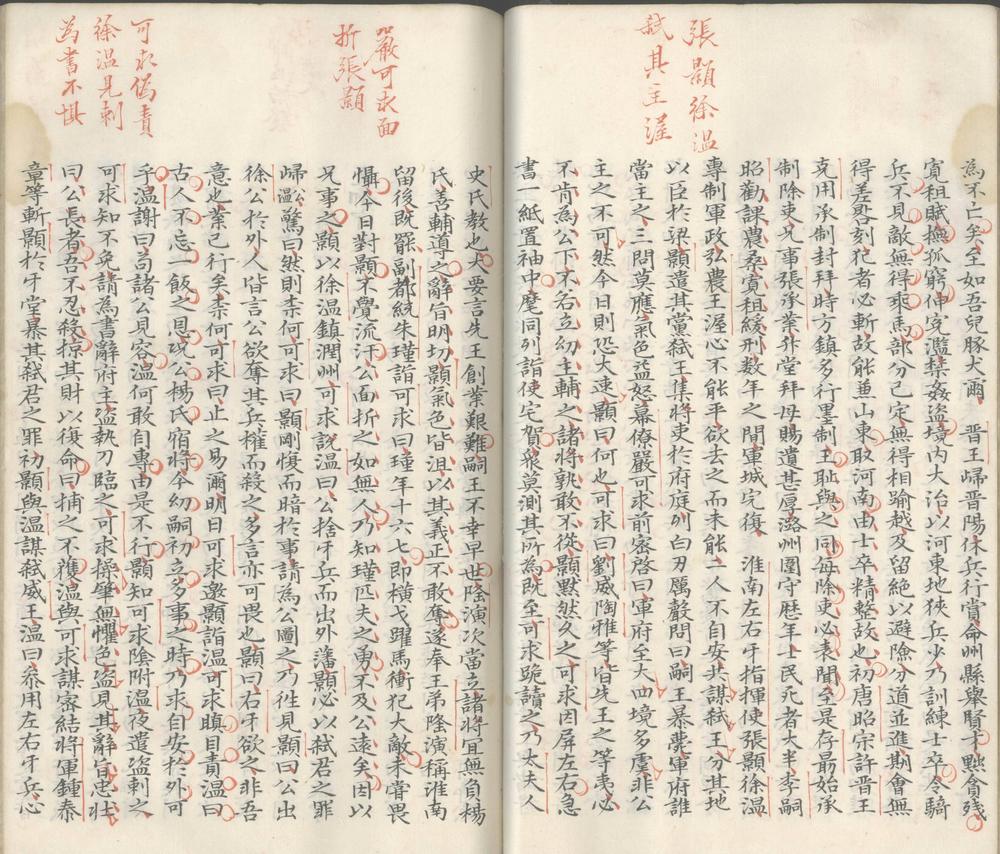 張顥徐溫
弑其主渥
為不亡矣至如吾兒豚犬爾　晉王歸晉陽休兵行賞命州縣舉賢才黜貪殘
寬租賦撫孤窮伸冤濫禁姦盜境內大治以河東地狹兵少乃訓練士卒令騎
兵不見敵無得乘馬部分已定無得相踰越及留絕以避險分道並進期會無
得差晷刻犯者必斬故能兼山東取河南由士卒精整故也初唐昭宗許晉王
克用承制封拜時方鎮多行墨制王恥與之同每除吏必表聞至是存勗始承
制除吏兄事張承業升堂拜母賜遺甚厚潞州圍守歷年士民死者大半李嗣
昭勸課農桑寬租緩刑數年之間軍城完復　淮南左右牙指揮使張顥徐溫
專制軍政弘農王渥心不能平欲去之而未能二人不自安共謀弑王分其地
以臣於梁顥遣其黨弑王集將吏於府庭列白刃厲聲問曰嗣王暴薨軍府誰
當主之三問莫應氣色益怒幕僚嚴可求前密啓曰軍府至大四境多虞非公
主之不可然今日則恐大速顥曰何也可求曰劉威陶雅等皆先王之等夷必
不肯為公下不若立幼主輔之諸將孰敢不從顥默然久之可求因屏左右急
書一紙置袖中麾同列詣使宅賀衆莫測其所為既至可求跪讀之乃太夫人
嚴可求面
折張顥
史氏教也大要言先王創業艱難嗣王不幸早世隆演次當立諸將宜無負楊
氏善輔導之辭旨明切顥氣色皆沮以其義正不敢奪遂奉王弟隆演稱淮南
留後既罷副都統朱瑾詣可求曰瑾年十六七即橫戈躍馬衝犯大敵未嘗畏
懾今日對顥不覺流汗公面折之如無人乃知瑾匹夫之勇不及公遠矣因以
兄事之顥以徐溫鎮潤州可求說溫曰公捨牙兵而出外藩顥必以弑君之罪
歸公溫驚曰然則柰何可求曰顥剛愎而暗於事請為公圖之乃往見顥曰公出
徐公於外人皆言公欲奪其兵權而殺之多言亦可畏也顥曰右牙欲之非吾
意也業已行矣柰何可求曰止之易爾明日可求邀顥詣溫可求瞋目責溫曰
古人不忘一飯之恩况公楊氏宿將今幼嗣初立多事之時乃求自安於外可
乎溫謝曰苟諸公見容溫何敢自專由是不行顥知可求陰附溫夜遣盜刺之
可求知不免請為書辭府主盜執刀臨之可求操筆無懼色盜見其辭旨忠壯
曰公長者吾不忍殺掠其財以復命曰捕之不獲溫與可求謀密結將軍鍾泰
章等斬顥於牙堂暴其弑君之罪初顥與溫謀弑威王溫曰叅用左右牙兵心
可求偽責
徐溫見刺
為書不懼